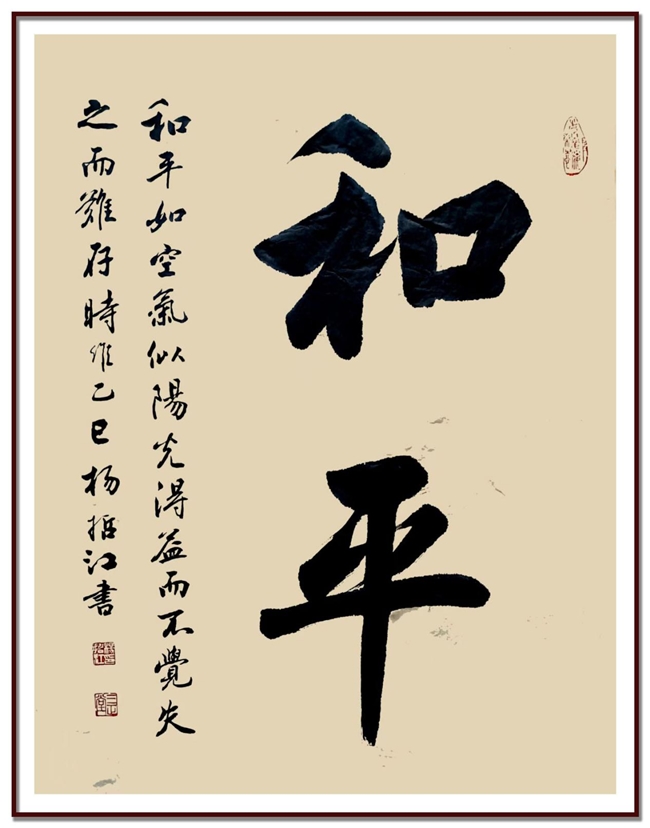 和平
和平如空氣似陽光得益而不覺失
之而難存時維乙巳楊振江書